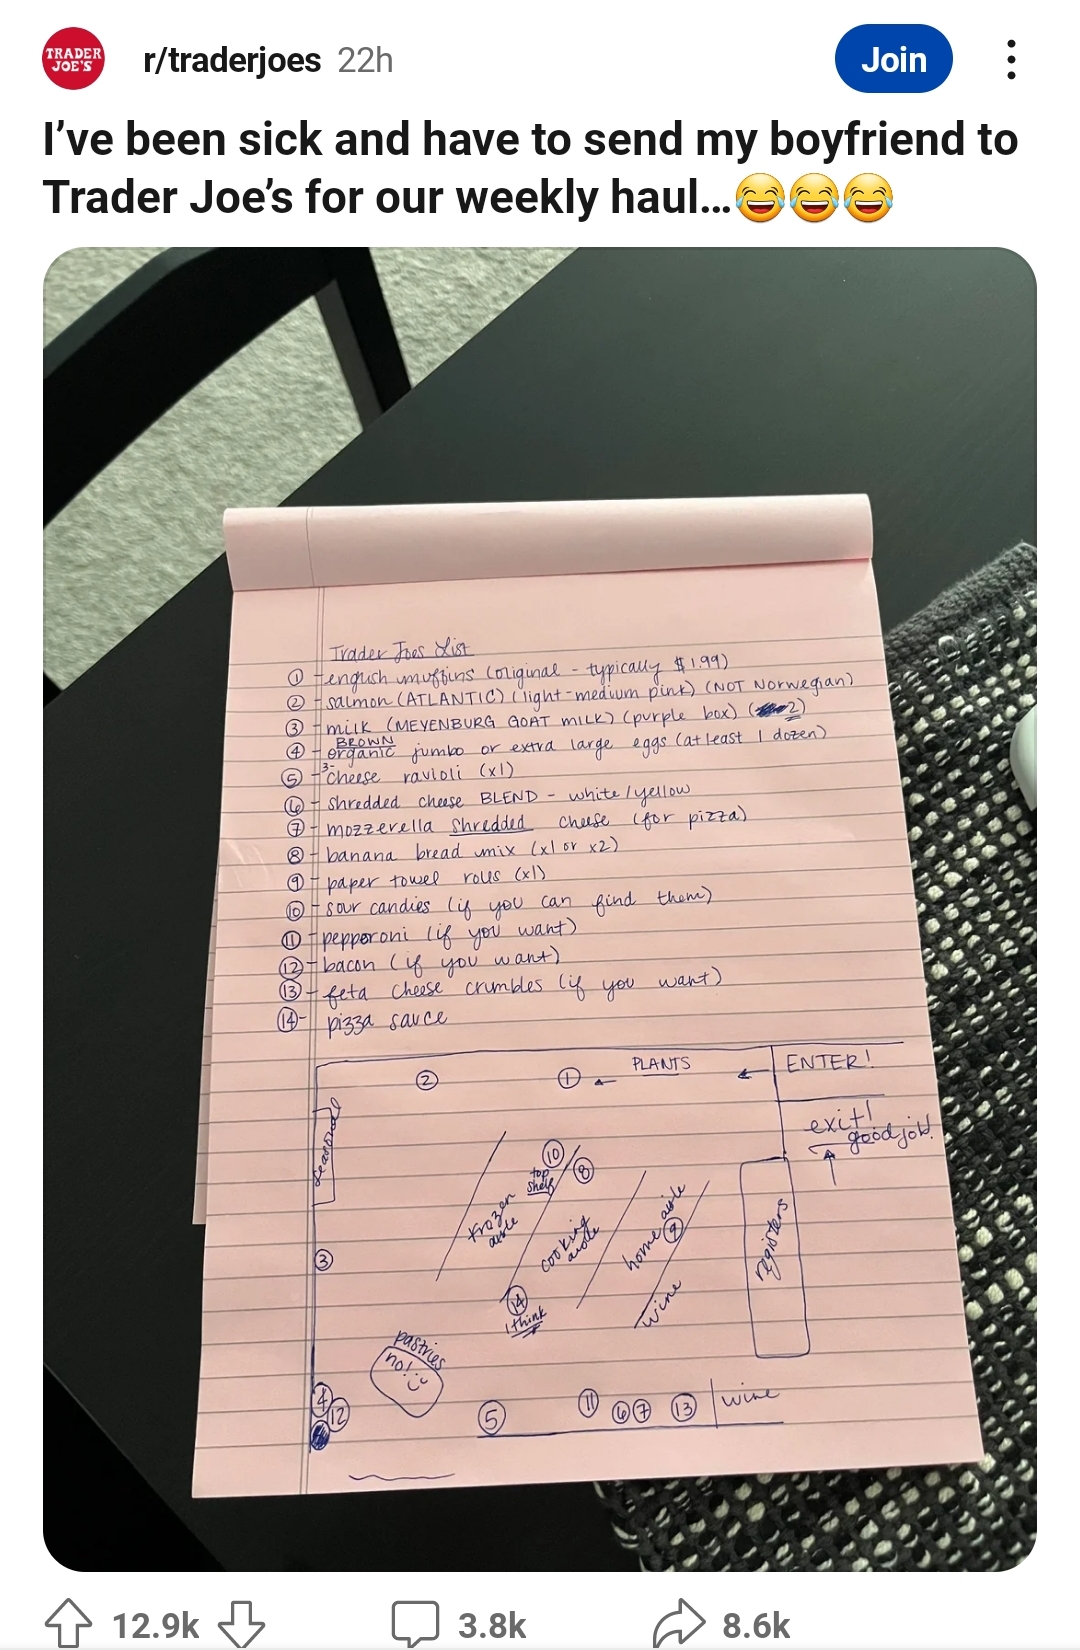 TRADER
JOE'S
r/traderjoes 22h
Join
I've been sick and have to send my boyfriend to
Trader Joe's for our weekly haul...😂😂😂
Trader Joes List
① - english muffins (original - typically $1.99)
② - salmon (ATLANTIC) (light-medium pink) (NOT Norwegian)
③ - milk (MEYENBURG GOAT MILK) (purple box) (2)
BROWN
④ - organic jumbo or extra large eggs (at least 1 dozen)
⑤ - 3-cheese ravioli (x1)
⑥ - shredded cheese BLEND - white/yellow
⑦ - mozzerella shredded cheese (for pizza)
⑧ - banana bread mix (x1 or x2)
⑨ - paper towel rolls (x1)
⑩ - sour candies (if you can find them)
⑪ - pepperoni (if you want)
⑫ - bacon (if you want)
⑬ - feta cheese crumbles (if you want)
⑭ - pizza sauce
② ① ← PLANTS ← ENTER!
exit!
good job!
seasonal
⑩
top
shelf
⑧
frozen
aisle
cooking
aisle
home aisle
⑨
wine
registers
③
⑭
I think
pastries
no!
:(
④
⑫
⑤ ⑪ ⑥ ⑦ ⑬ wine
12.9k 3.8k 8.6k